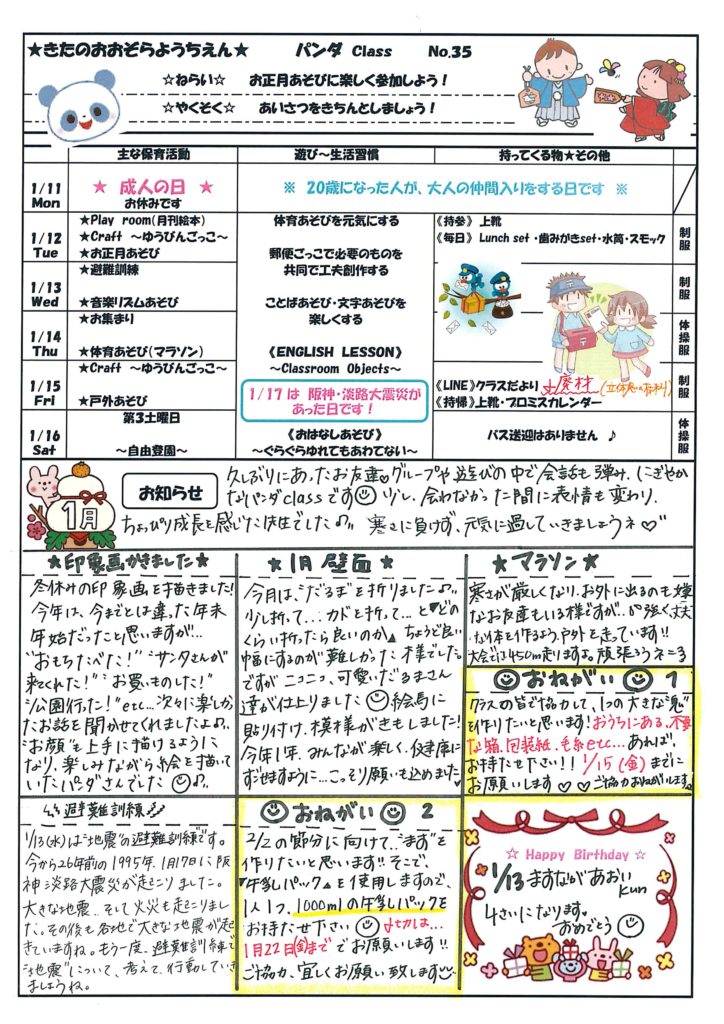 ★きたのおおぞらようちえん★ パンダ Class No.35
☆ねらい☆ お正月あそびに楽しく参加しよう！
☆やくそく☆ あいさつをきちんとしましょう！
主な保育活動 遊び～生活習慣 持ってくる物★その他
1/11 Mon
★ 成人の日 ★
お休みです
※ 20歳になった人が、大人の仲間入りをする日です ※
1/12 Tue
★Play room(月刊絵本)
★Craft ～ゆうびんごっこ～
★お正月あそび
体育あそびを元気にする
郵便ごっこで必要のものを
共同で工夫創作する
《持参》上靴
《毎日》Lunch set・歯みがきset・水筒・スモック
制服
1/13 Wed
★避難訓練
★音楽リズムあそび
ことばあそび・文字あそびを
楽しくする
制服
1/14 Thu
★お集まり
★体育あそび(マラソン)
《ENGLISH LESSON》
～Classroom Objects～
体操服
1/15 Fri
★Craft ～ゆうびんごっこ～
★戸外あそび
1/17は 阪神・淡路大震災が
あった日です！
《LINE》クラスだより
廃材
《持帰》上靴・プロミスカレンダー
制服
1/16 Sat
第3土曜日
～自由登園～
《おはなしあそび》
～ぐらぐらゆれてもあわてない～
バス送迎はありません ♪
体操服
1月
お知らせ
久しぶりにあったお友達♡グループや遊びの中で会話も弾み、にぎやか
なパンダclassです 少し、会わなかった間に表情も変わり、
ちょっぴり成長を感じた先生でした♪。 寒さに負けず、元気に過していきましょうネ♡
★印象画かきました★
冬休みの印象画を描きました！
今年は、今までとは違った年末
年始だったと思いますが…
"おもちたべた！" "サンタさんが
来てくれた！" "お買いものした！"
"公園行った！" etc…次々に楽しか
たお話を聞かせてくれましたよ♪。
"お顔"も上手に描けるように
なり、楽しみながら絵を描いて
いたパンダさんでした ♪。
★1月 壁面★
今月は、"だるま"を折りました♪。
少し折って…カドを折って…と『どの
くらい折ったら良いのか』ちょうど良い
幅にするのが難しかった様でした。
ですが ニコニコ、可愛いだるまさん
達が仕上りました 絵馬に
貼り付け、模様がきもしました！
今年1年、みんなが楽しく、健康に
すごせますように…こっそり願いも込めました♡
★マラソン★
寒さが厳しくなり、お外に出るのも嫌
なお友達もいる様ですが…心強く丈夫
な体を作るよう、戸外を走っています!!
大会では450m走りますよ。頑張ろうネ
おねがい 1
クラスの皆で協力して、1つの大きな"鬼"
を作りたいと思います！おうちにある、不要
な箱、包装紙、毛糸etc…あれば、
お持たせ下さい!! 1/15(金)までに
お願いします♡♡ ご協力おねがいします。
避難訓練
1/13(水)は"地震"の避難訓練です。
今から26年前の1995年1月17日に阪
神・淡路大震災が起こりました。
大きな地震…そして火災も起こりまし
た。その後も各地で大きな地震が起
きていますね。もう一度、避難訓練で
"地震"について、考えて、行動していき
ましょうね。
おねがい 2
2/2の節分に向けて、"ます"を
作りたいと思います!! そこで、
『牛乳パック』を使用しますので、
1人1つ、1000mlの牛乳パックを
お持たせ下さい
1月22日(金)まで でお願いします!!
ご協力、宜しくお願い致します
☆ Happy Birthday ☆
1/13 ますなが あおい
Kun
4さいになります。
おめでとう